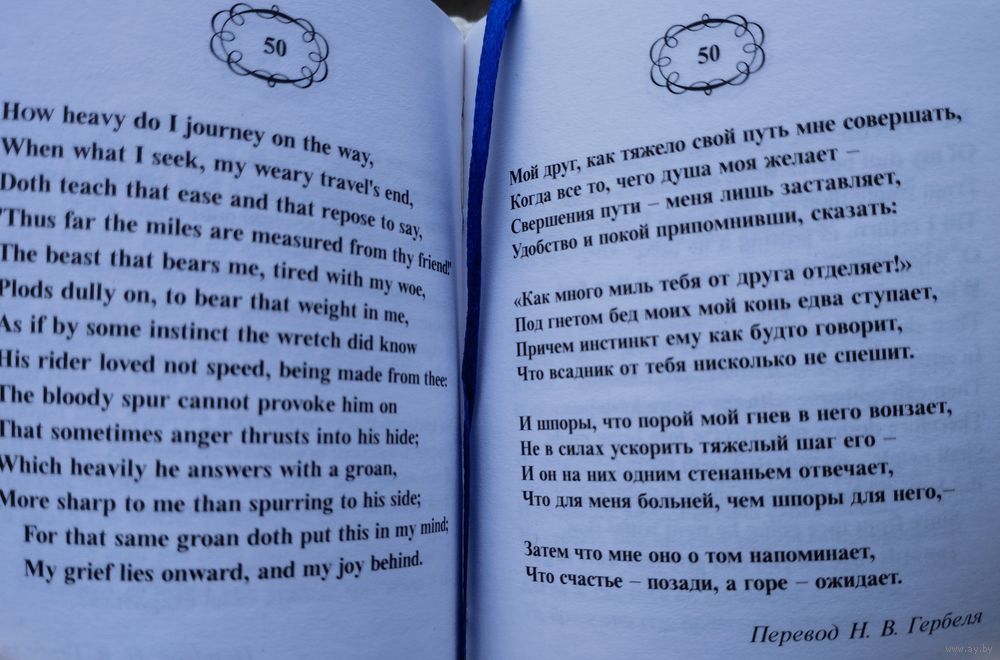 50
How heavy do I journey on the way,
When what I seek, my weary travel's end,
Doth teach that ease and that repose to say,
"Thus far the miles are measured from thy friend!"
The beast that bears me, tired with my woe,
Plods dully on, to bear that weight in me,
As if by some instinct the wretch did know
His rider loved not speed, being made from thee:
The bloody spur cannot provoke him on
That sometimes anger thrusts into his hide;
Which heavily he answers with a groan,
More sharp to me than spurring to his side;
For that same groan doth put this in my mind;
My grief lies onward, and my joy behind.
50
Мой друг, как тяжело свой путь мне совершать,
Когда все то, чего душа моя желает –
Свершения пути – меня лишь заставляет,
Удобство и покой припомнивши, сказать:
«Как много миль тебя от друга отделяет!»
Под гнетом бед моих мой конь едва ступает,
Причем инстинкт ему как будто говорит,
Что всадник от тебя нисколько не спешит.
И шпоры, что порой мой гнев в него вонзает,
Не в силах ускорить тяжелый шаг его –
И он на них одним стенаньем отвечает,
Что для меня больней, чем шпоры для него,–
Затем что мне оно о том напоминает,
Что счастье – позади, а горе – ожидает.
Перевод Н. В. Гербеля
www.ay.by